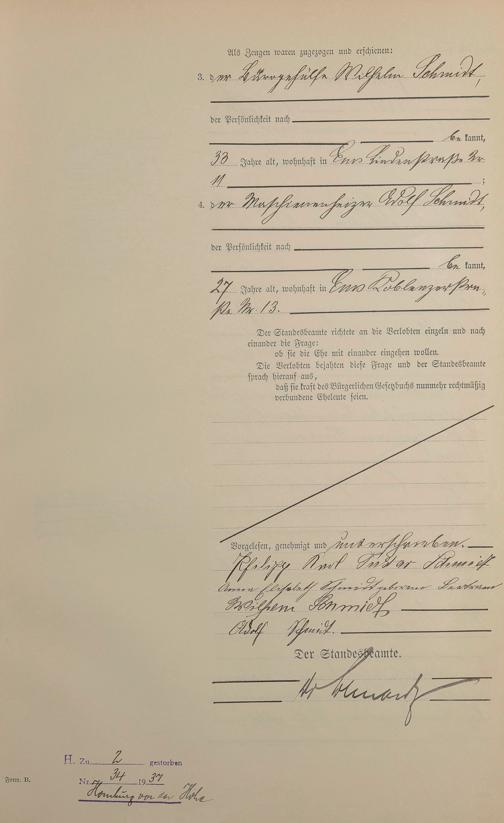 Als Zeugen waren zugezogen und erschienen:
3. der Bürogehülfe Wilhelm Schmidt,
der Persönlichkeit nach
bekannt,
33 Jahre alt, wohnhaft in Ems Lindenstraße Nr.
11 ;
4. der Maschinenheizer Adolf Schmidt,
der Persönlichkeit nach
bekannt,
27 Jahre alt, wohnhaft in Ems Koblenzerstra-
ße Nr. 13.
Der Standesbeamte richtete an die Verlobten einzeln und nach
einander die Frage:
ob sie die Ehe mit einander eingehen wollen.
Die Verlobten bejahten diese Frage und der Standesbeamte
sprach hierauf aus,
daß sie kraft des Bürgerlichen Gesetzbuchs nunmehr rechtmäßig
verbundene Eheleute seien.
Vorgelesen, genehmigt und unterschrieben.
Philipp Karl Schmidt
Anna Elisabeth Schmidt geborene
Wilhelm Schmidt
Adolf Schmidt.
Der Standesbeamte.
H. Zu 2 gestorben
Nr. 34 1937
Homburg vor der Höhe
Form. B.